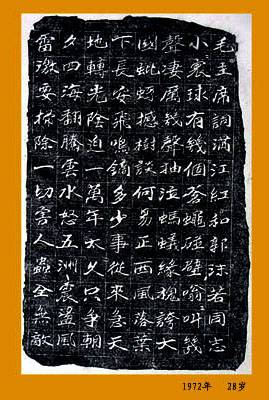 毛主席詞滿江紅和郭沫若同志
小寰球有幾個蒼蠅碰壁嗡叫幾
聲凄厲幾聲抽泣螞蟻緣槐誇大
國蚍蜉撼樹談何易正西風落葉
下長安飛鳴鏑多少事從來急天
地轉光陰迫一萬年太久只爭朝
夕四海翻騰雲水怒五洲震盪風
雷激要掃除一切害人蟲全無敵
1972年 28岁